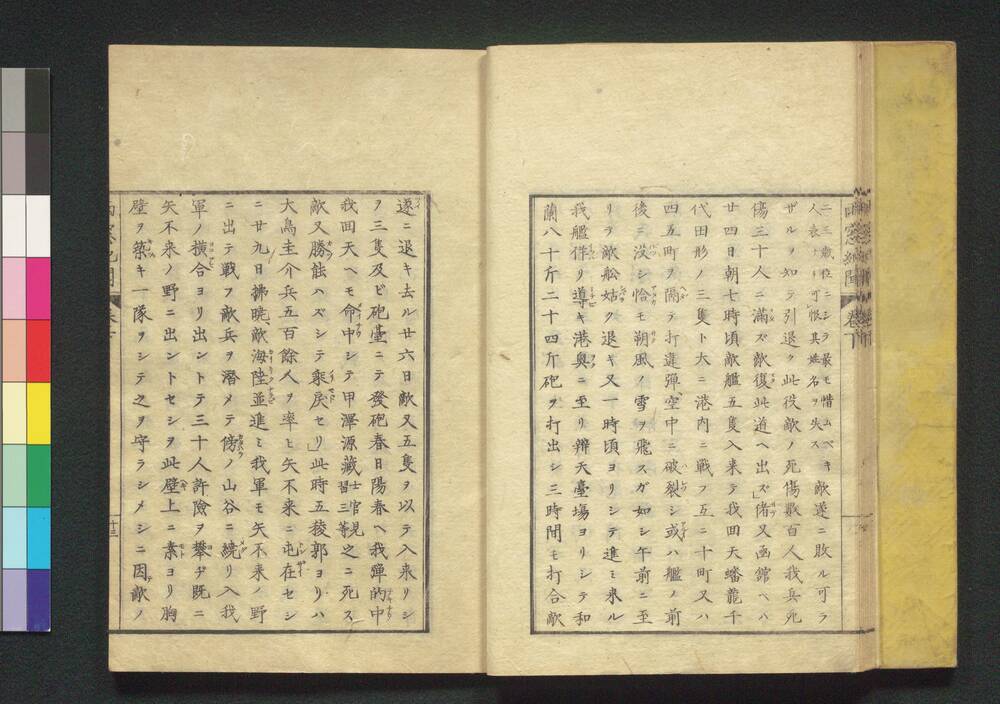 二三歳位ニシテ最モ惜ムベキ
人表ナリ可恨其姓名ヲ失ス
敵遂ニ敗ル可ラ
ザルヲ知テ引退ク此役敵ノ死傷數百人我兵死
傷三十人ニ滿ズ敵復此道ヘ出ズ」偖又函館ヘハ
廿四日朝七時頃敵艦五隻入來テ我回天蟠龍千
代田形ノ三隻ト大ニ港内ニ戰フ互ニ十町又ハ
四五町ヲ隔テ打違彈空中ニ破裂シ或ハ艦ノ前
後ニ没シ恰モ朔風ノ雪ヲ飛スガ如シ午前ニ至
リテ敵舩姑ク退キ又一時頃ヨリシテ進ミ來ル
我艦佯リ導キ港奥ニ至リ辨天臺場ヨリシテ和
蘭八十斤二十四斤砲ヲ打出シ三時間モ打合敵
遂ニ退キ去ル廿六日敵又五隻ヲ以テ入来リシ
ヲ三隻及ビ砲臺ニテ發砲春日陽春ヘ我彈的中
我回天ヘモ命中シテ甲澤源藏士官見習三等之ニ死ス
敵又勝能ハズシテ乗戻セリ」此時五稜郭ヨリハ
大鳥圭介兵五百餘人ヲ率ヒ矢不來ニ屯在セシ
ニ廿九日拂曉敵海陸並進ミ我軍モ矢不来ノ野
ニ出テ戰フ敵兵ヲ潛メテ傍ノ山谷ニ繞リ入我
軍ノ横合ヨリ出ントテ三十人許險ヲ攀ヂ既ニ
矢不来ノ野ニ出ントセシヲ此壁上ニ素ヨリ胸
壁ヲ築キ一隊ヲシテ之ヲ守ラシメシニ因敵ノ
十三